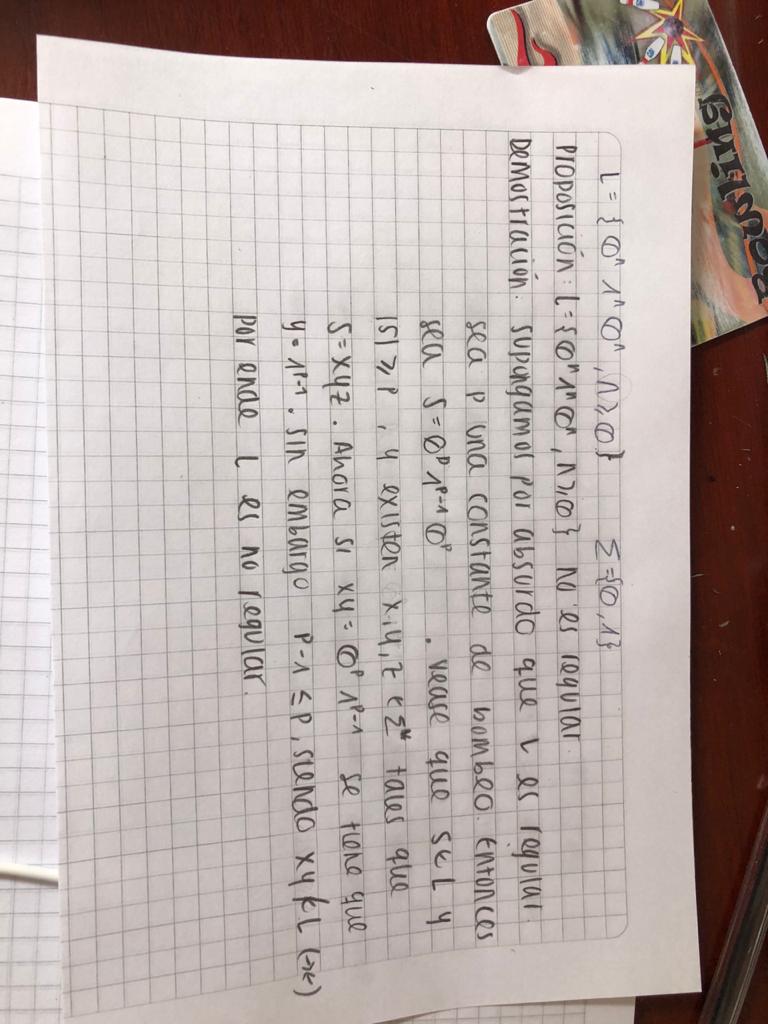 L = {0ⁿ 1ⁿ 0ⁿ, n ≥ 0} Σ = {0,1}
Proposición: L = {0ⁿ 1ⁿ 0ⁿ, n ≥ 0} no es regular
Demostración: Supongamos por absurdo que L es regular.
sea p una constante de bombeo. Entonces
sea S = 0ᵖ 1ᵖ⁻¹ 0ᵖ . vease que S ∈ L y
|S| ≥ p, y existen x, y, z ∈ Σ* tales que
S = xyz. Ahora si xy = 0ᵖ 1ᵖ⁻¹ se tiene que
y = 1ᵖ⁻¹. sin embargo p-1 ≤ p, siendo xy ∉ L (→←)
por ende L es no regular.
Bowling